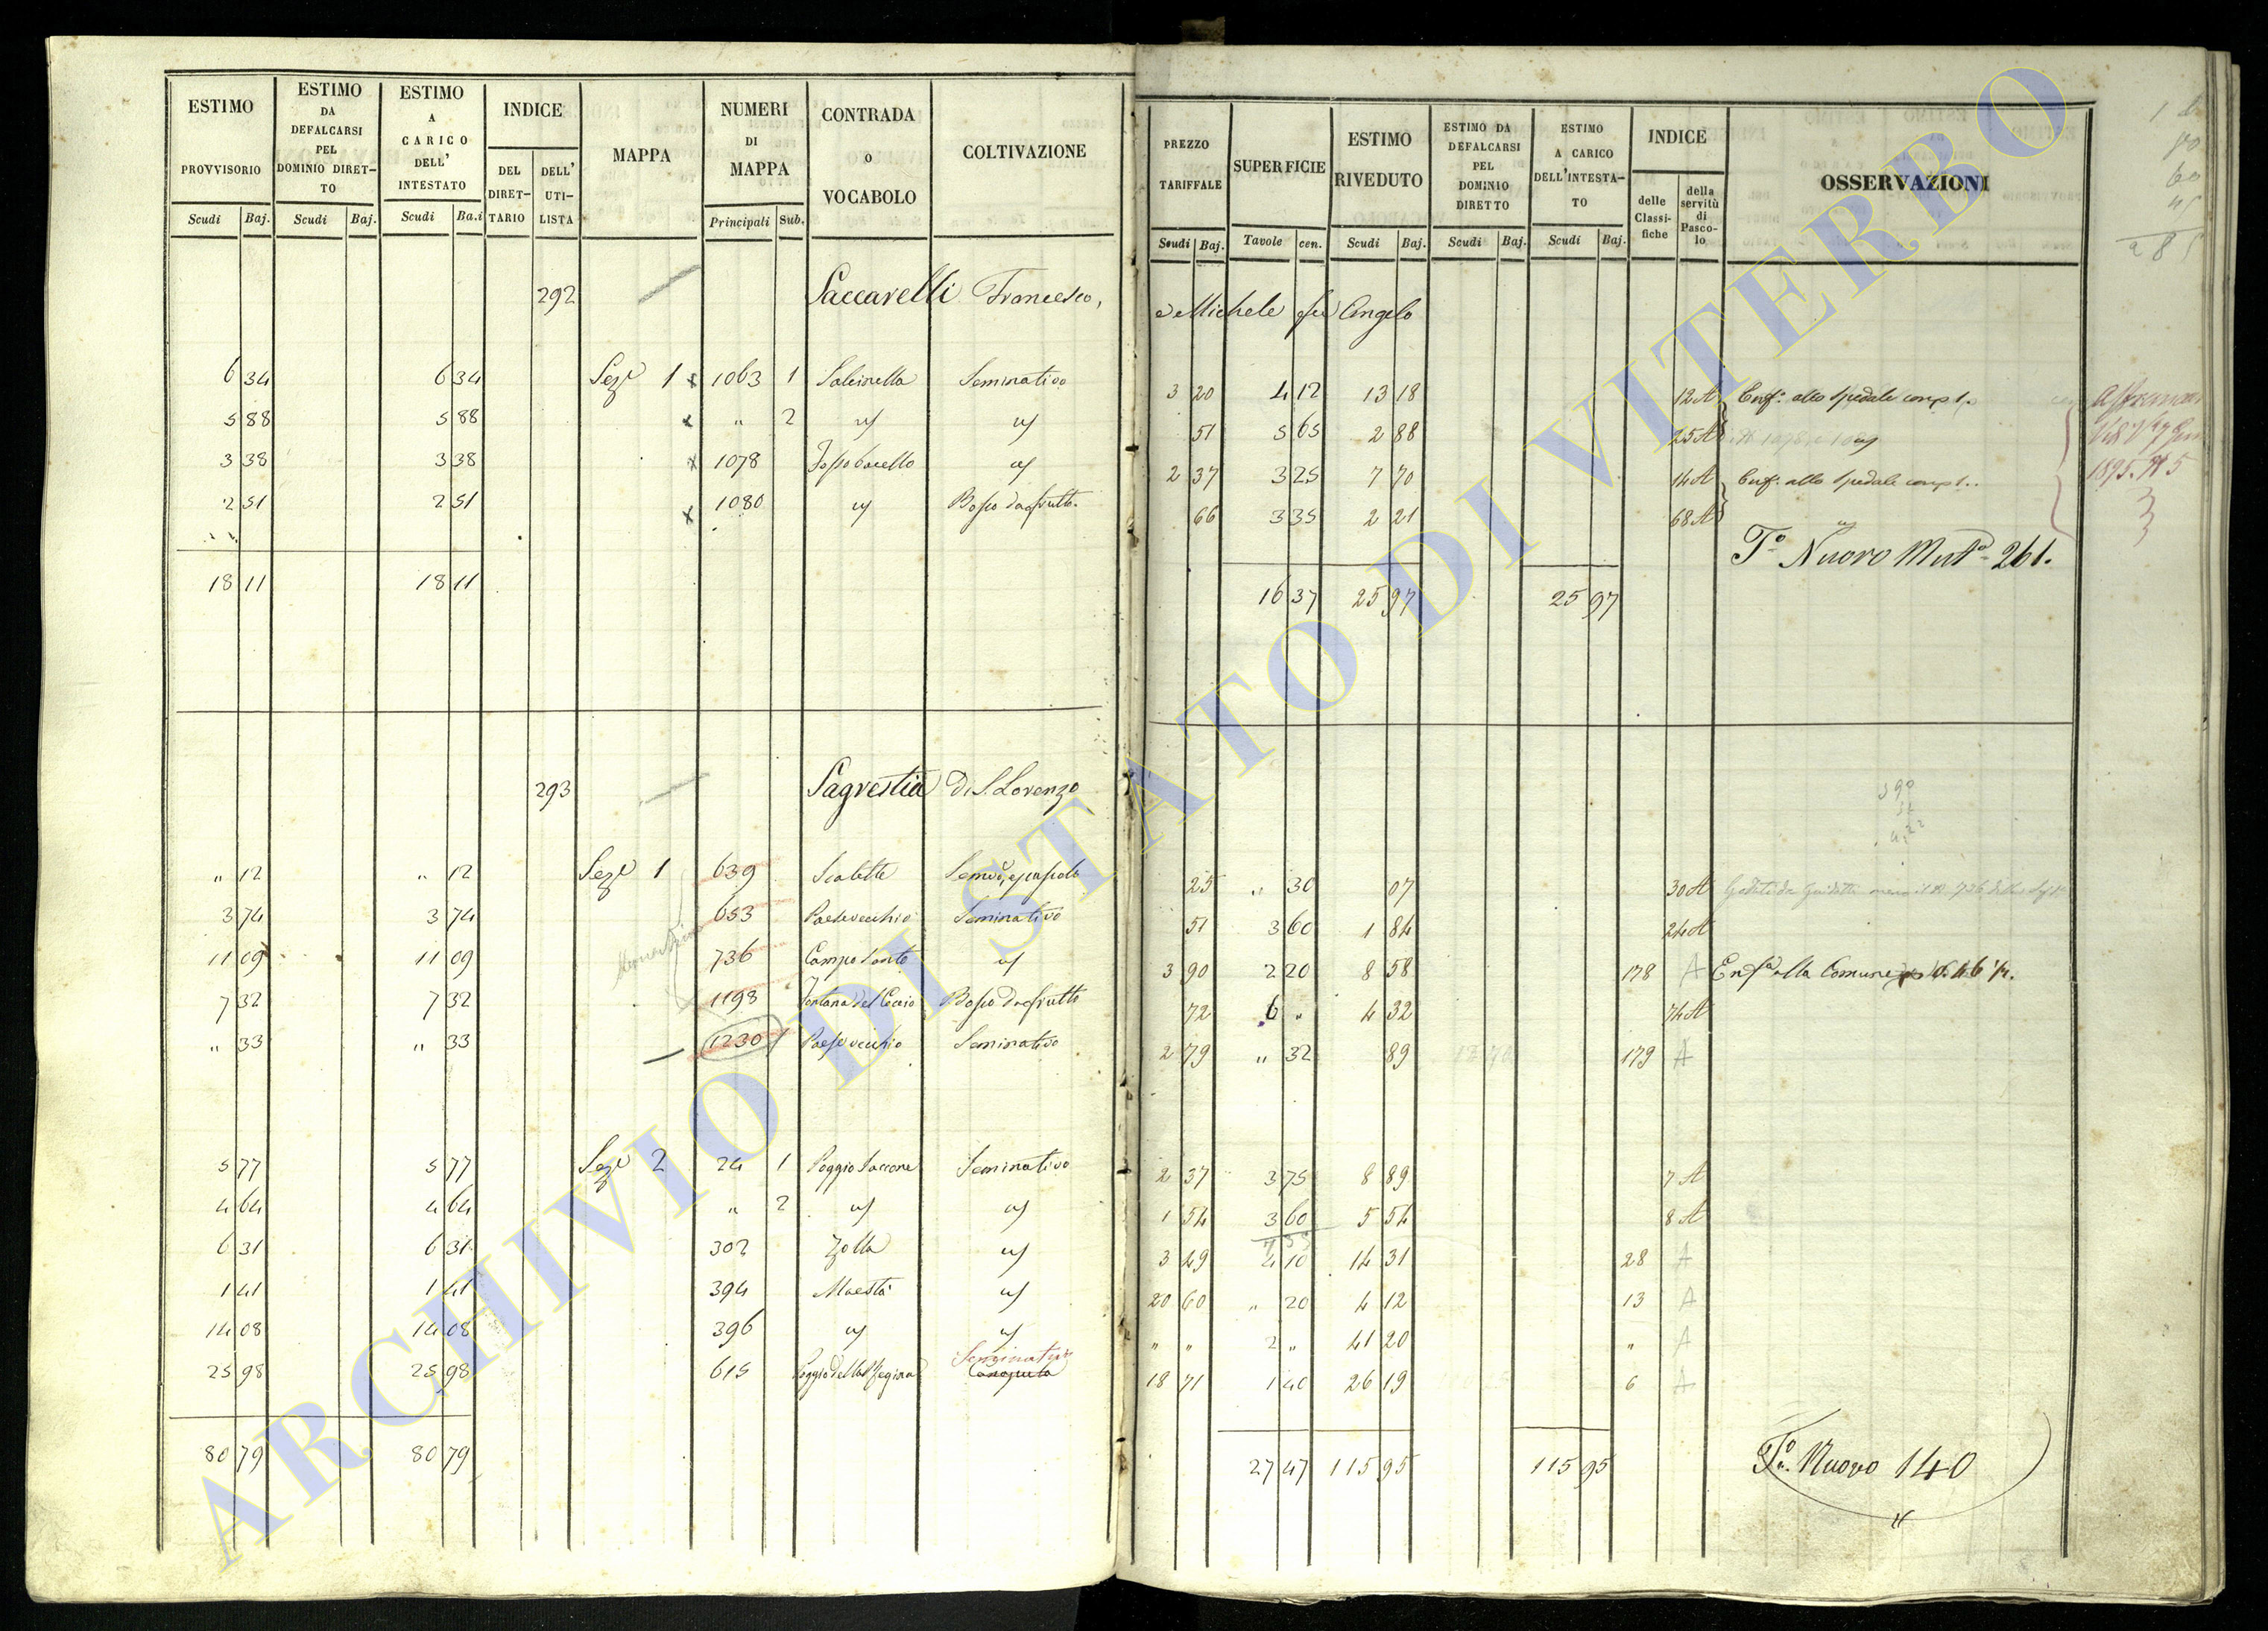 ESTIMO PROVVISORIO Scudi Baj.
ESTIMO DA DEFALCARSI PEL DOMINIO DIRET-TO Scudi Baj.
ESTIMO A CARICO DELL' INTESTATO Scudi Ba.i
INDICE DEL DIRET-TARIO DELL' UTI-LISTA
MAPPA
NUMERI DI MAPPA Principali Sub.
CONTRADA O VOCABOLO
COLTIVAZIONE
PREZZO TARIFFALE Scudi Baj.
SUPERFICIE Tavole cen.
ESTIMO RIVEDUTO Scudi Baj.
ESTIMO DA DEFALCARSI PEL DOMINIO DIRETTO Scudi Baj.
ESTIMO A CARICO DELL'INTESTA-TO Scudi Baj.
INDICE delle Classi-fiche della servitù di Pasco-lo
OSSERVAZIONI
292 Saccarelli Francesco, e Michele fu Angelo
6 34 6 34 Sez.e 1 x 1063 1 Salcinella Seminativo 3 20 4 12 13 18 12 A Enf. allo Spedale comp.
5 88 5 88 x " 2 " " 51 5 65 2 88 25 A
3 38 3 38 x 1078 " 2 37 3 25 7 70 14 A Enf. allo Spedale comp.
2 51 2 51 x 1080 " Bosco da frutto 66 3 35 2 21 68 A
T.o Nuovo Mut.o 261.
18 11 18 11 16 37 25 97 25 97
1895. N 5
293 Sagrestia Di S. Lorenzo
" 12 " 12 Sez.e 1 639 Scalette Sem.vo, e pascolo 25 " 30 07 30 A
3 74 3 74 653 Paesevecchio Seminativo 51 3 60 1 84 24 A
11 09 11 09 736 Campo Santo " 3 90 2 20 8 58 178 A Enf.a alla Comune
7 32 7 32 1198 Fontana del Ceccio Bosco da frutto 72 6 " 4 32 74 A
" 33 " 33 1230 1 Paesevecchio Seminativo 2 79 " 32 89 179 A
5 77 5 77 Sez.e 2 24 1 Poggio Saccone Seminativo 2 37 3 75 8 89 7 A
4 64 4 64 " 2 " " 1 54 3 60 5 54 8 A
6 31 6 31 302 Zolla " 3 49 4 10 14 31 28 A
1 41 1 41 394 Maestà " 20 60 " 20 4 12 13 A
14 08 14 08 396 " " " " 2 " 41 20 " A
25 98 25 98 615 Poggio della Regina Seminativo Canapula 18 71 1 40 26 19 6 A
80 79 80 79 27 47 115 95 115 95
T.o Nuovo 140
ARCHIVIO DI STATO DI VITERBO